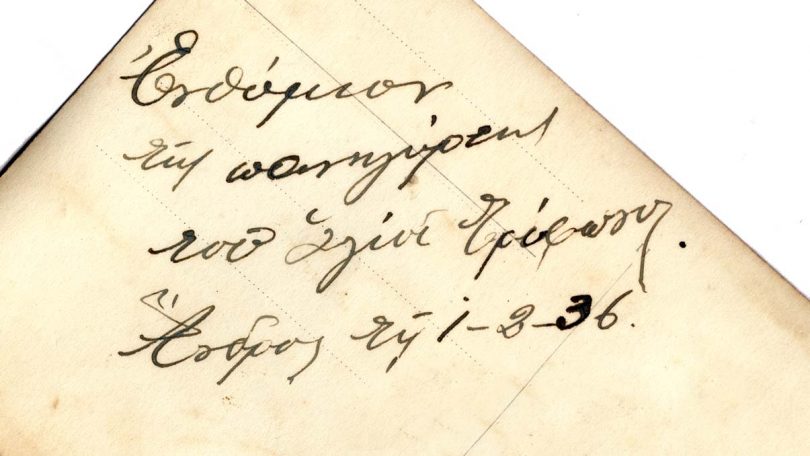 Ἐνθύμιον
τῆς πανηγύρεως
τοῦ Ἁγίου Τρύφωνος.
Ἄνδρος τῇ 1-2-36.